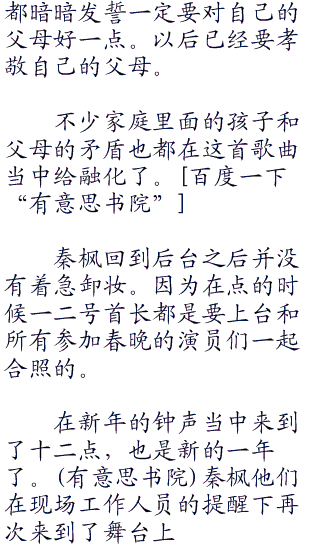 都暗暗发誓一定要对自己的
父母好一点。以后已经要孝
敬自己的父母。
不少家庭里面的孩子和
父母的矛盾也都在这首歌曲
当中给融化了。[百度一下
“有意思书院”]
秦枫回到后台之后并没
有着急卸妆。因为在点的时
候一二号首长都是要上台和
所有参加春晚的演员们一起
合照的。
在新年的钟声当中来到
了十二点，也是新的一年
了。(有意思书院)秦枫他们
在现场工作人员的提醒下再
次来到了舞台上